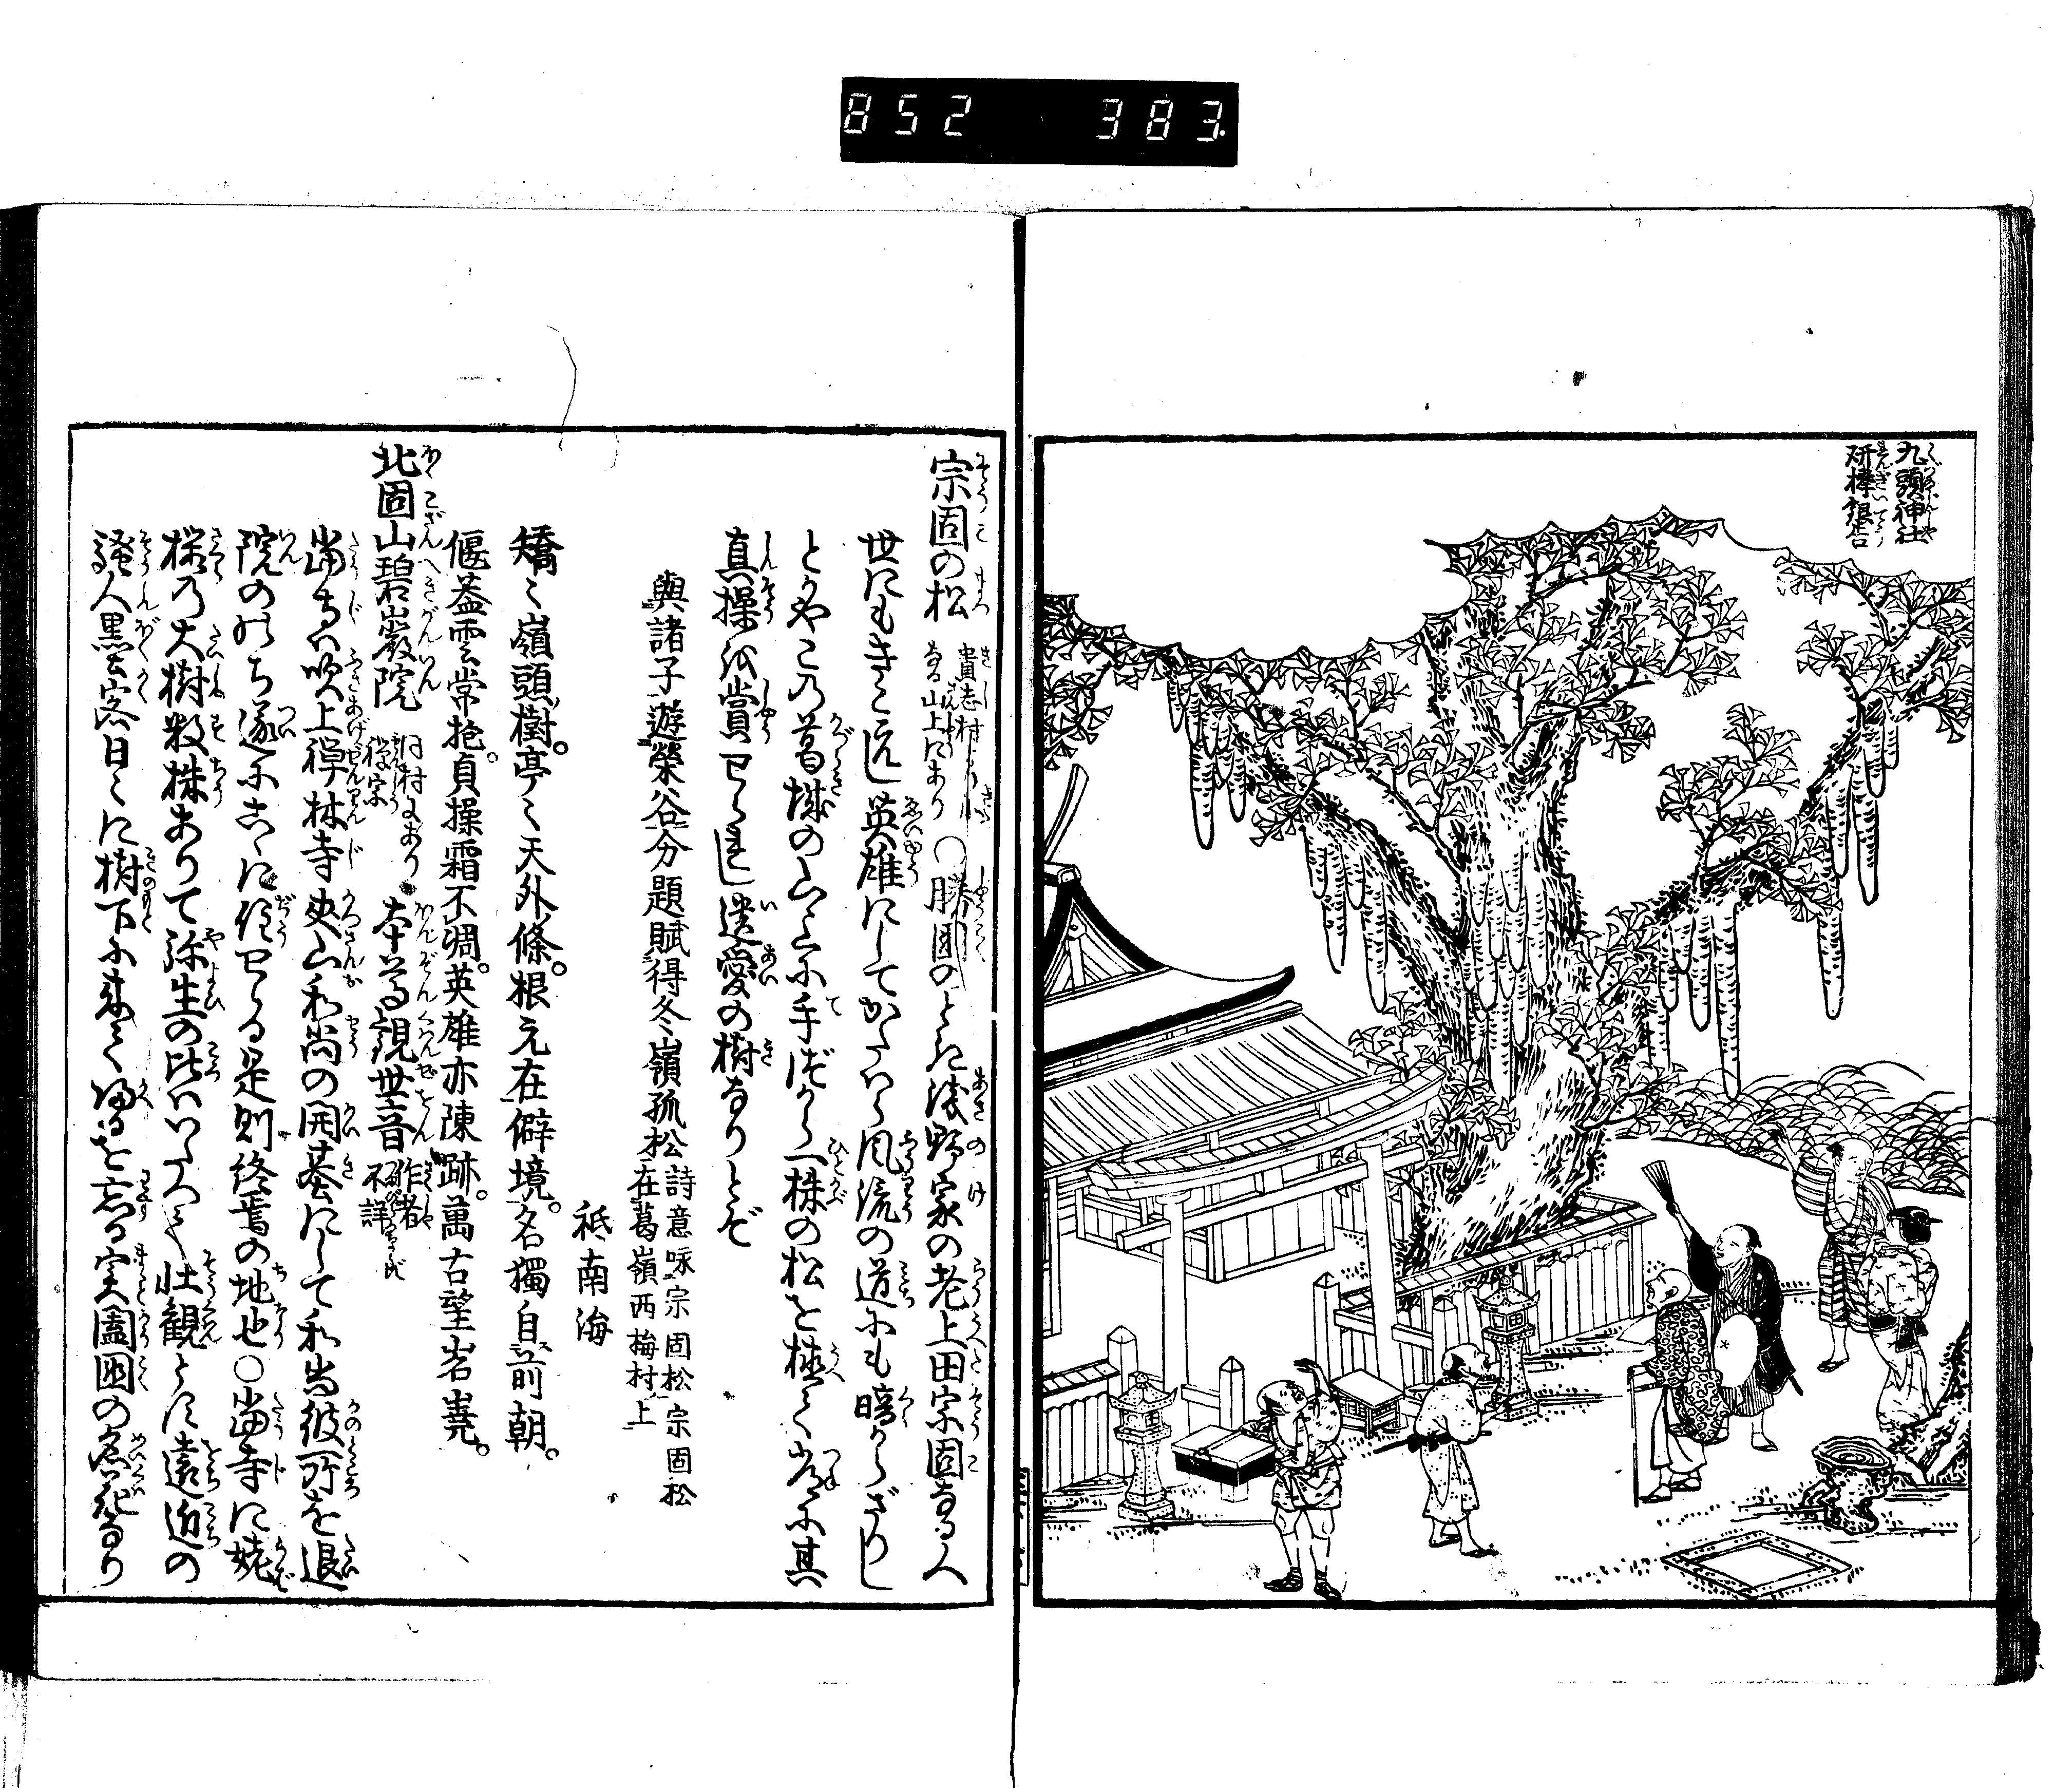 852 383.
九頭神社
研樟銀杏
宗固の松 貴志村 なる山上にあり ○勝国のとき浅野家の老上田宗固なる人
世にもきこえし英雄にしてかたへら風流の道にも暗からざりし
とかやこの葛城の山に手づから一株の松を植て常に其
真操を賞せられし遺愛の樹なりとぞ
與諸子遊榮谷分題賦得冬嶺孤松 詩意咏宗固松宗固松
在葛嶺西梅村上
祗南海
矯〻嶺頭樹。亭〻天外條。根元在僻境。名獨自前朝。
偃葢雲常抱。貞操霜不凋。英雄亦陳跡。萬古望岧嶤。
北固山碧巌院 同村にあり 禅宗 本尊観世音 作者不詳
当寺は吹上禅林寺夬山和尚の開基にして和尚彼所を退
院ののち遂にこゝに住せる是則終焉の地也○当寺に姥
桜の大樹数株ありて弥生の比はいたつて壮観とし遠近の
騒人黒客日〻に樹下に来て帰るを忘る実圍囦の名花なり